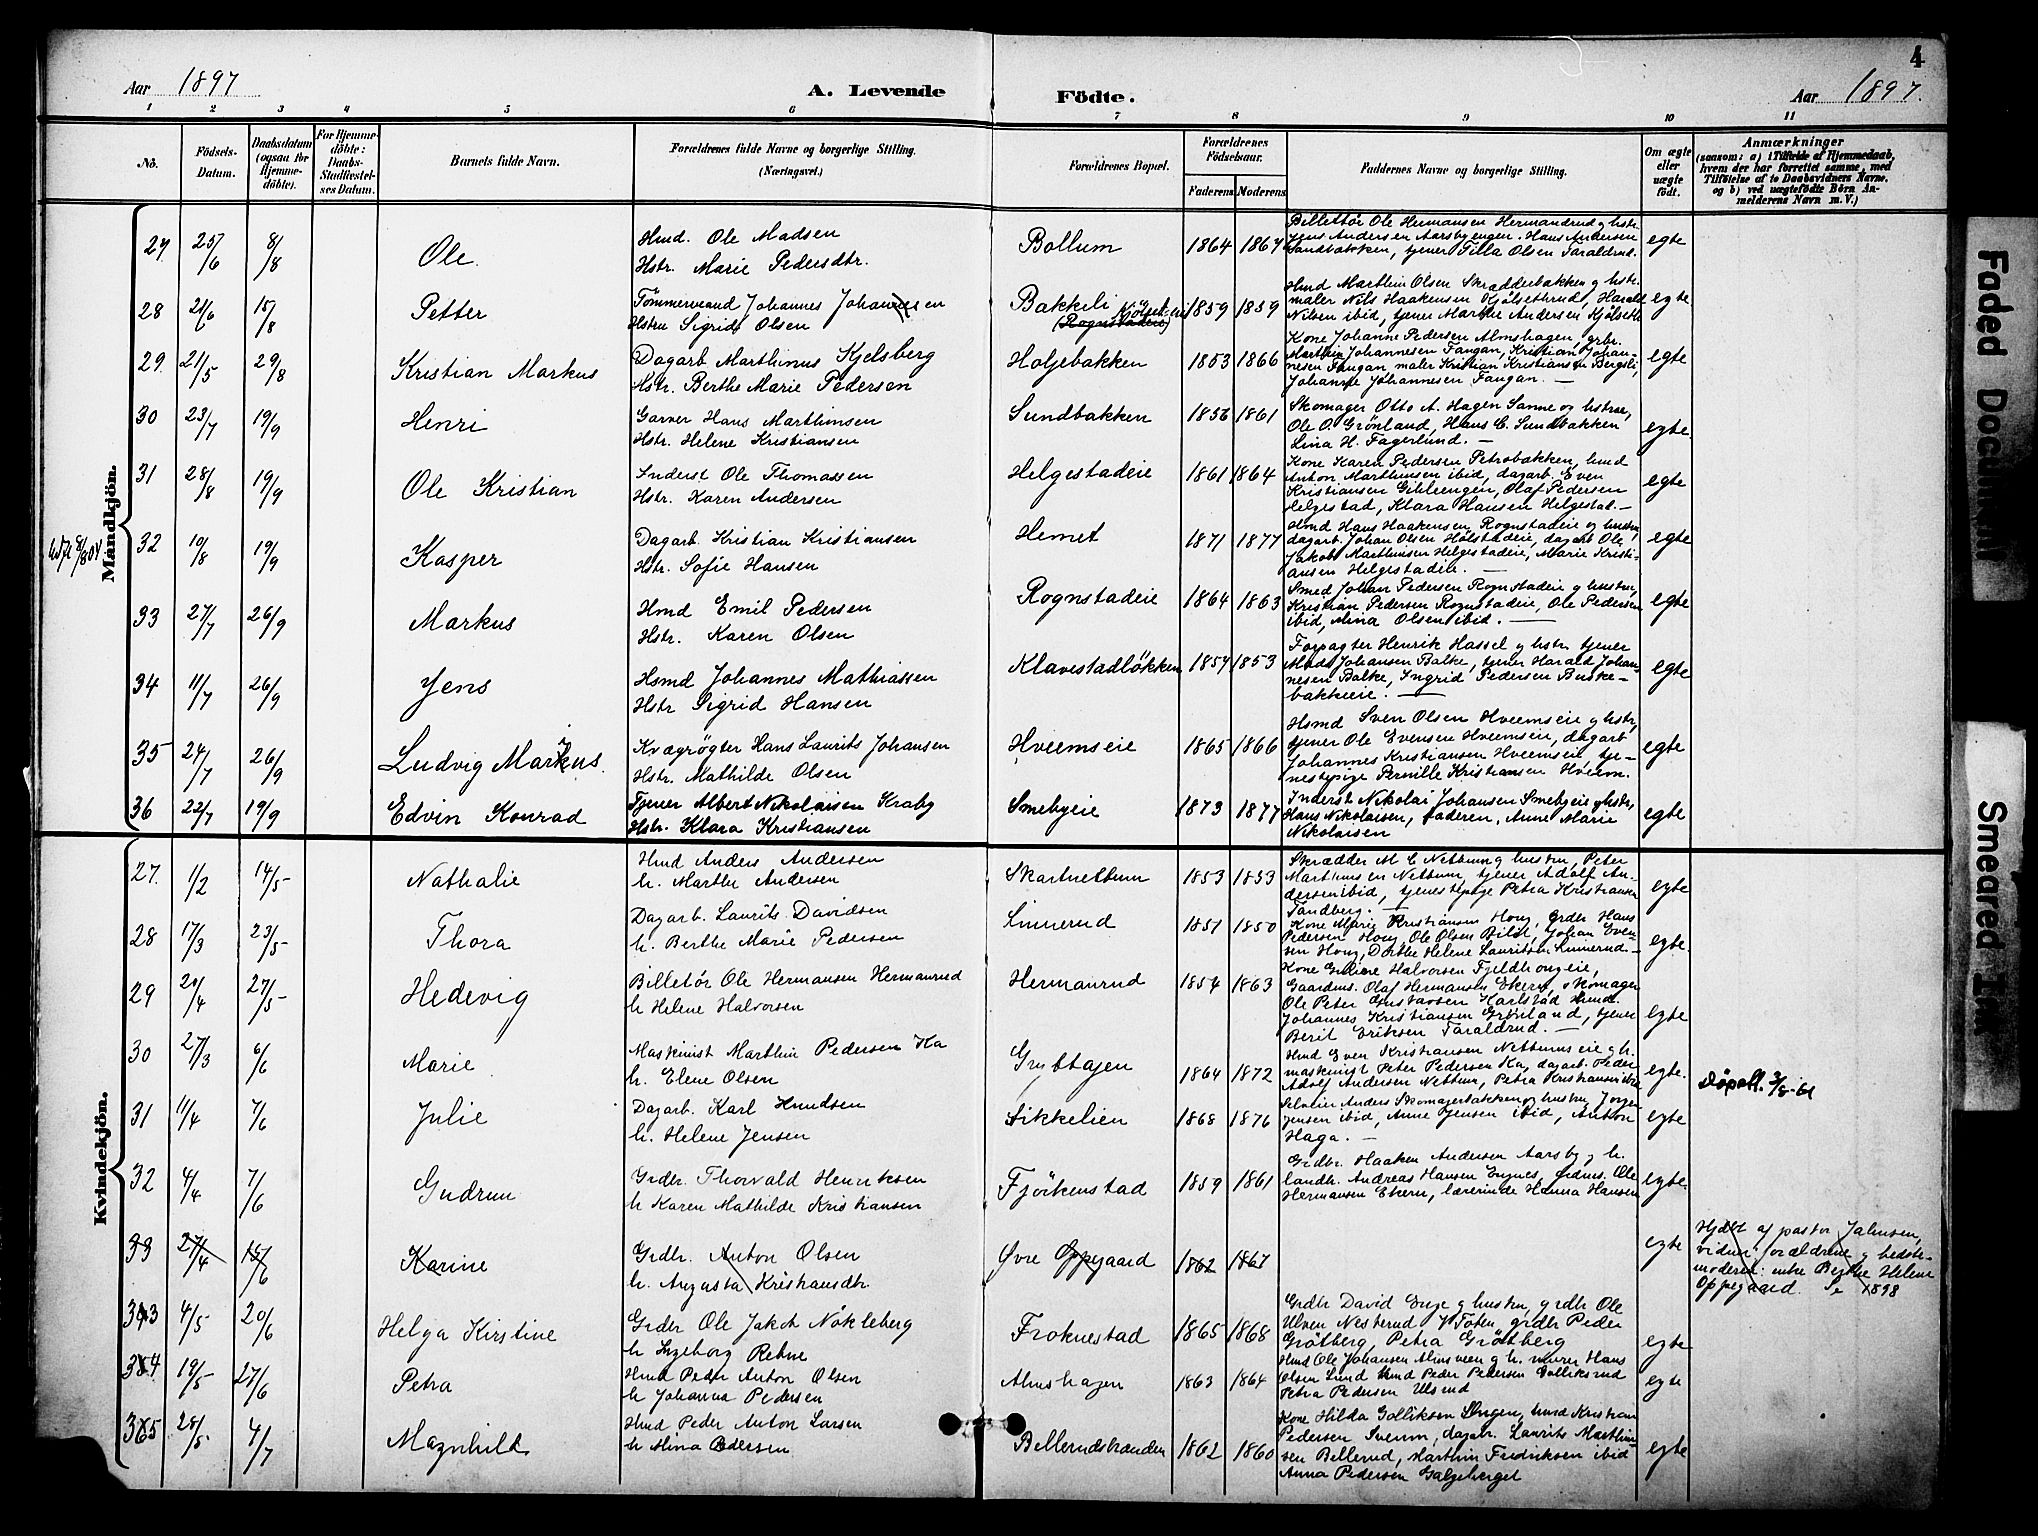 4
Aar 1897
A. Levende
Födte.
Aar 1897.
1 2 3 4 5 6 7 8 9 10 11
No.
Födsels-
Datum.
Daabsdatum
(ogsaa for
Hjemme-
döbte).
For Hjemme-
döbte:
Daabs-
Stadfæstel-
ses Datum.
Barnets fulde Navn.
Forældrenes fulde Navne og borgerlige Stilling.
(Næringsvei.)
Forældrenes Bopæl.
Forældrenes
Födselsaar.
Faderens Moderens
Faddernes Navne og borgerlige Stilling.
Om ægte
eller
uægte
födt.
Anmærkninger
(saasom: a) i Tilfælde af Hjemmedaab,
hvem der har forrettet samme, med
Tilföielse af to Daabsvidners Navne,
og b) ved uægtefödte Börn An-
melderens Navn m. V.)
Mandkjön.
27 25/6 8/8 Ole.
Hmd. Ole Madsen
Hstr. Marie Pedersdtr.
Bollum 1864 1867
Billettör Ole Hermansen Hermanrud g hstr.
Jens Andersen Aarsbyengen. Hans Andersen
Sandbakken, tjener Tilla Olsen Taraldrud.
egte
28 21/6 15/8 Petter
Tömmermand Johannes Johannesen
Hstru Sigrid Olsen
Bakkeli
(Rognstadeie)
1859 1859
Hmd Marthin Olsen Skrædderbakken g hstr.
maler Nils Haakensen Hjölsethrud, Harald
Nilsen ibid, tjener Marthe Andersen Hjölseth
egte
29. 21/5 29/8 Kristian Markus
Dagarb Marthinus Kjelsberg
Hstr. Berthe Marie Pedersen
Holjebakken 1853 1866
Kone Johanne Pedersen Almshagen, grbr.
Marthin Johannesen Fangan, Kristian Johan-
nesen Fangan maler Kristian Kristiansen Bergsli,
Johanne Johannesen Fangan. —
egte
30 23/7 19/9 Henri
Garver Hans Marthinsen
Hstr. Helene Kristiansen
Sundbakken 1856 1861
Skomager Otto A. Hagen Sanne og hstrue,
Ole O. Grönland, Hans C. Sundbakken
Lina H. Fagerlund. —
egte.
31 28/8 19/9 Ole Kristian
Inderst Ole Thomassen
Hstr. Karen Andersen
Helgestadeie 1861 1864
Kone Karen Pedersen Petrobakken, hmd
Anton Marthinsen ibid, dagarb. Even
Kristiansen Gihlrengen, Olaf Pedersen
Helgestad, Klara Hansen Helgestad. —
egte
32 10/8 19/9 Kasper
Dagarb. Kristian Kristiansen
Hstr. Sofie Hansen
Hemet 1871 1877
Hmd Hans Haakensen, Rognstadeie og hustru,
dagarb. Johan Olsen Hölstadeie, dagarb Ole
Jakob Marthinsen Helgestadeie, Marie Kristi-
ansen Helgestadeie. —
egte
33 27/7 26/9 Markus
Hmd Emil Pedersen
Hstr. Karen Olsen
Rognstadeie 1864 1863
Smed Johan Pedersen Rognstadeie g hustru,
Kristian Pedersen Rognstadeie, Ole Pedersen
ibid, Mina Olsen ibid. —
egte
34 11/7 26/9 Jens
Hsmd Johannes Mathiassen
Hstr Sigrid Hansen
Klavestadlökken 1854 1853
Forpagter Henrik Hassel g hstr. tjener
Mads Johansen Balke, tjener Harald Johan-
nesen Balke, Ingrid Pedersen Buske-
bakkeie. —
egte
35 24/7 26/9 Ludvig Markus.
Kvægrögter Hans Laurits Johansen
Hstr. Mathilde Olsen
Hveemseie 1865 1866
Hsmd Sven Olsen Hveemseie g hstr,
tjener Ole Evensen Hveemseie, dagarb
Johannes Kristiansen Hveemseie, tje-
nestepige Pernille Kristiansen Hveem.
egte
36 22/7 19/9 Edvin Konrad
Tjener Albert Nikolaisen Kraby
Hstr. Klara Kristiansen
Smebyeie 1873 1877
Inderst Nikolai Johansen Smebyeie g hstr,
Hans Nikolaisen, faderen, Anne Marie
Nikolaisen
egte
Kvindekjön.
27. 1/2 14/5 Nathalie
Hmd Anders Andersen
h. Marthe Andersen
Skartnettum 1853 1853
Skrædder M C Nettum g hustru, Peter
Marthinsen Nettum, tjener Adolf An-
dersen ibid, tjenestepige Petra Kristiansen
Sandberg. —
egte
28 17/3 23/5 Thora
Dagarb. Laurits Davidsen
h. Berthe Marie Pedersen
Linnerud 1851 1850
Kone Marie Kristiansen Houg, Grdbr Hans
Pedersen Houg, Ole Olsen Bilst, Johan Even-
sen Houg, Dorthe Helene Lauritsen Linnerud —
egte.
29 20/4 27/5 Hedevig
Billetör Ole Hermansen Hermanrud
h Helene Halvorsen
Hermanrud 1854 1863
Kone Guline Halvorsen Fjeldhougeie,
Gaardms. Olaf Hermansen Ekern, skomager
Ole Peter Gustavsen Karlstad Hmd.
Johannes Kristiansen Grönland, tjener
Berit Eriksen Taraldrud. —
egte
30 27/3 6/6 Marie
Maskinist Marthin Pedersen Ka
h. Elene Olsen
1864 1872
Hmd Even Kristiansen Nettumseie g h.
maskinist Peter Pedersen Ka, dagarb. Peder
Adolf Andersen Nettum, Petra Kristiansen ibid
egte.
Döpatt. 3/8-61
31 11/4 7/6 Julie
Dagarb. Karl Knudsen
h. Helene Jensen
Sikkelien 1868 1876
Selveier Anders Skomagerbakken og hustru, Jörgen
Jensen ibid, Anne Jensen ibid, Anton
Haga. —
egte
32 4/4 7/6 Gudrun
Grdbr. Thorvald Henriksen
h Karen Mathilde Kristiansen
Fjörkenstad 1859 1861
Grdbr. Haaken Andersen Aarsby g h.
landh. Andreas Hansen Engnes, grdms. Ole
Hermansen Ekern, lærerinde Hanna Hansen
egte.
33 27/4 15/6 Karine
Grdbr. Anton Olsen
h. Augusta Kristiansdtr.
Øvre Oppegaard 1862 1867
egte
Hjdbt af pastor Jahnsen,
vidner: forældrene g bedste-
moderen enke Berthe Helene
Oppegaard. Se 1898
33 4/5 20/6 Helga Kirstine
Grdbr Ole Jakob Nökleberg
h Ingeborg Rebne
Froknestad 1865 1868
Grdbr David Enge g hustru, grdbr Ole
Ulven Nesterud V. Toten, grdbr Peder
Gröteberg, Petra Gröteberg
egte
34 19/5 27/6 Petra
Hmd Peder Anton Olsen
h Johanna Pedersen
Almshagen 1863 1864
Hmd Ole Johansen Almsveen g h. murer Hans
Olsen Lund Hmd Peder Pedersen Golliksrud
Petra Pedersen Ulsrud
egte
35 28/5 4/7 Magnhild
Hmd Peder Anton Larsen
h Mina Pedersen
Bellerudstranden 1862 1860
Kone Hilda Golliksen Lingen, hmd Kristian
Pedersen Sveum, dagarb. Laurits Marthin-
sen Bellerud, Marthin Fredriksen ibid
Anna Pedersen Galgeberget
egte
Faded Document
Smeared Ink